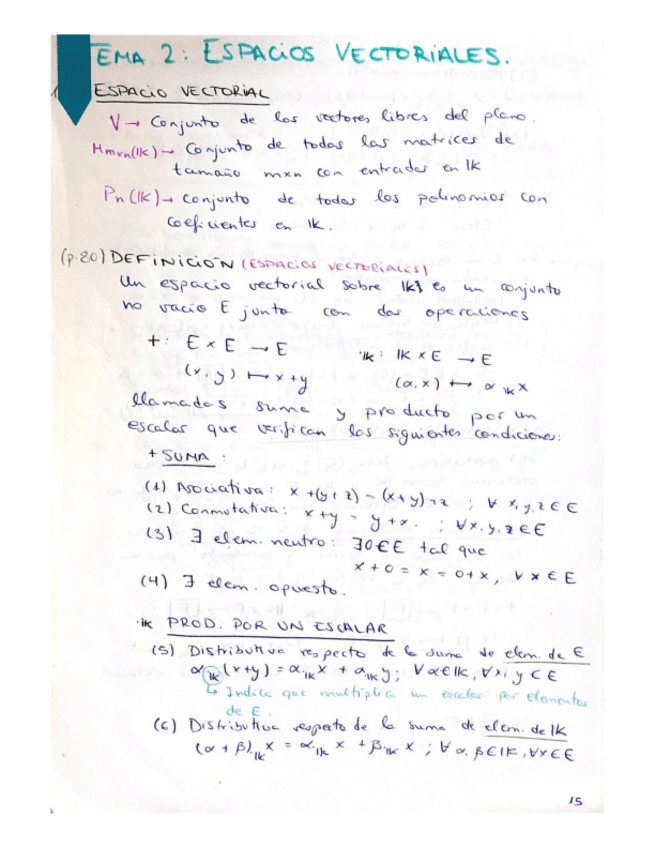 TEMA 2: ESPACIOS VECTORIALES.
ESPACIO VECTORIAL
V → Conjunto de los vectores libres del plano.
Mmxn(lK) → Conjunto de todas las matrices de
tamaño mxn con entradas en lK
Pn(lK) → conjunto de todos los polinomios con
coeficientes en lK.
(p.80) DEFINICIÓN (ESPACIOS VECTORIALES)
Un espacio vectorial sobre lK es un conjunto
no vacío E junto con dos operaciones
+: E x E → E ·lK: lK x E → E
(x,y) ↦ x+y (α,x) ↦ α ·lK x
llamadas suma y producto por un
escalar que verifican las siguientes condiciones:
+ SUMA :
(1) Asociativa: x+(y+z) = (x+y)+z ; ∀ x,y,z ∈ E
(2) Conmutativa: x+y = y+x. ; ∀x,y,z ∈ E
(3) ∃ elem. neutro: ∃0∈E tal que
x+0 = x = 0+x, ∀ x ∈ E
(4) ∃ elem. opuesto.
·lK PROD. POR UN ESCALAR
(5) Distributiva respecto de la suma de elem. de E
α ·lK (x+y) = α ·lK x + α ·lK y; ∀ α∈lK, ∀x, y ∈ E
↳ Indica que multiplica un escalar por elementos
de E.
(6) Distributiva respecto de la suma de elem. de lK
(α + β) ·lK x = α ·lK x + β ·lK x ; ∀ α, β∈lK, ∀x ∈ E
15